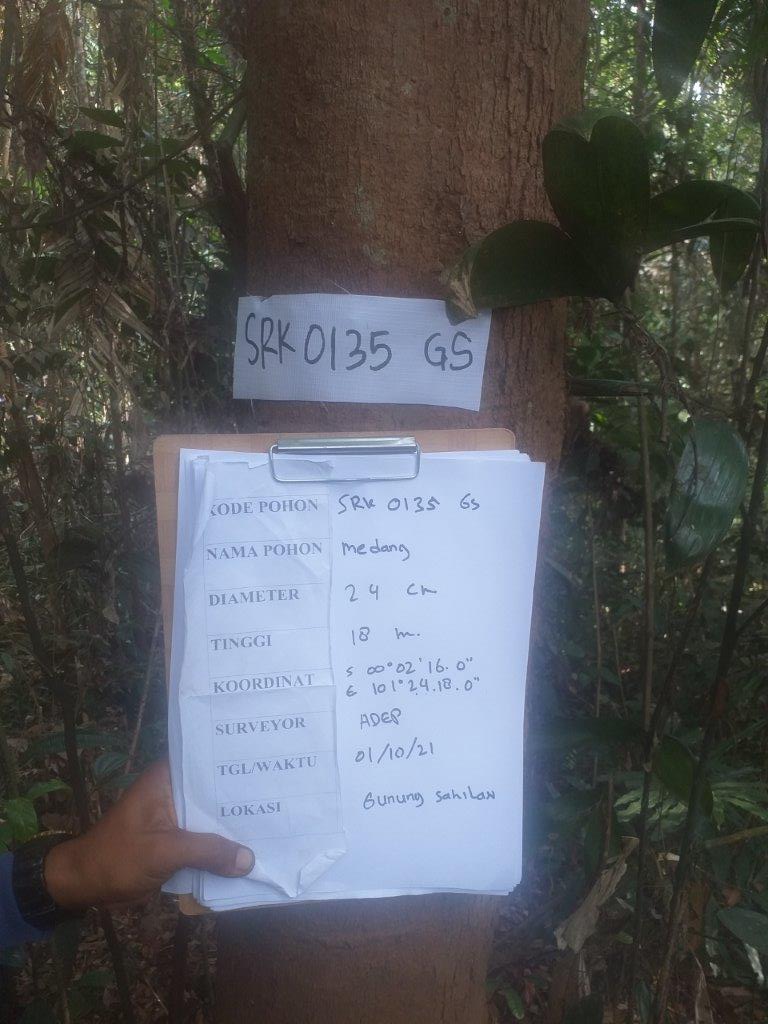 SRK 0135 GS
KODE POHON SRK 0135 GS
NAMA POHON medang
DIAMETER 24 cm
TINGGI 18 m.
KOORDINAT S 00°02'16.0"
E 101°24.18.0"
SURVEYOR ADEP
TGL/WAKTU 01/10/21
LOKASI Gunung Sahilan